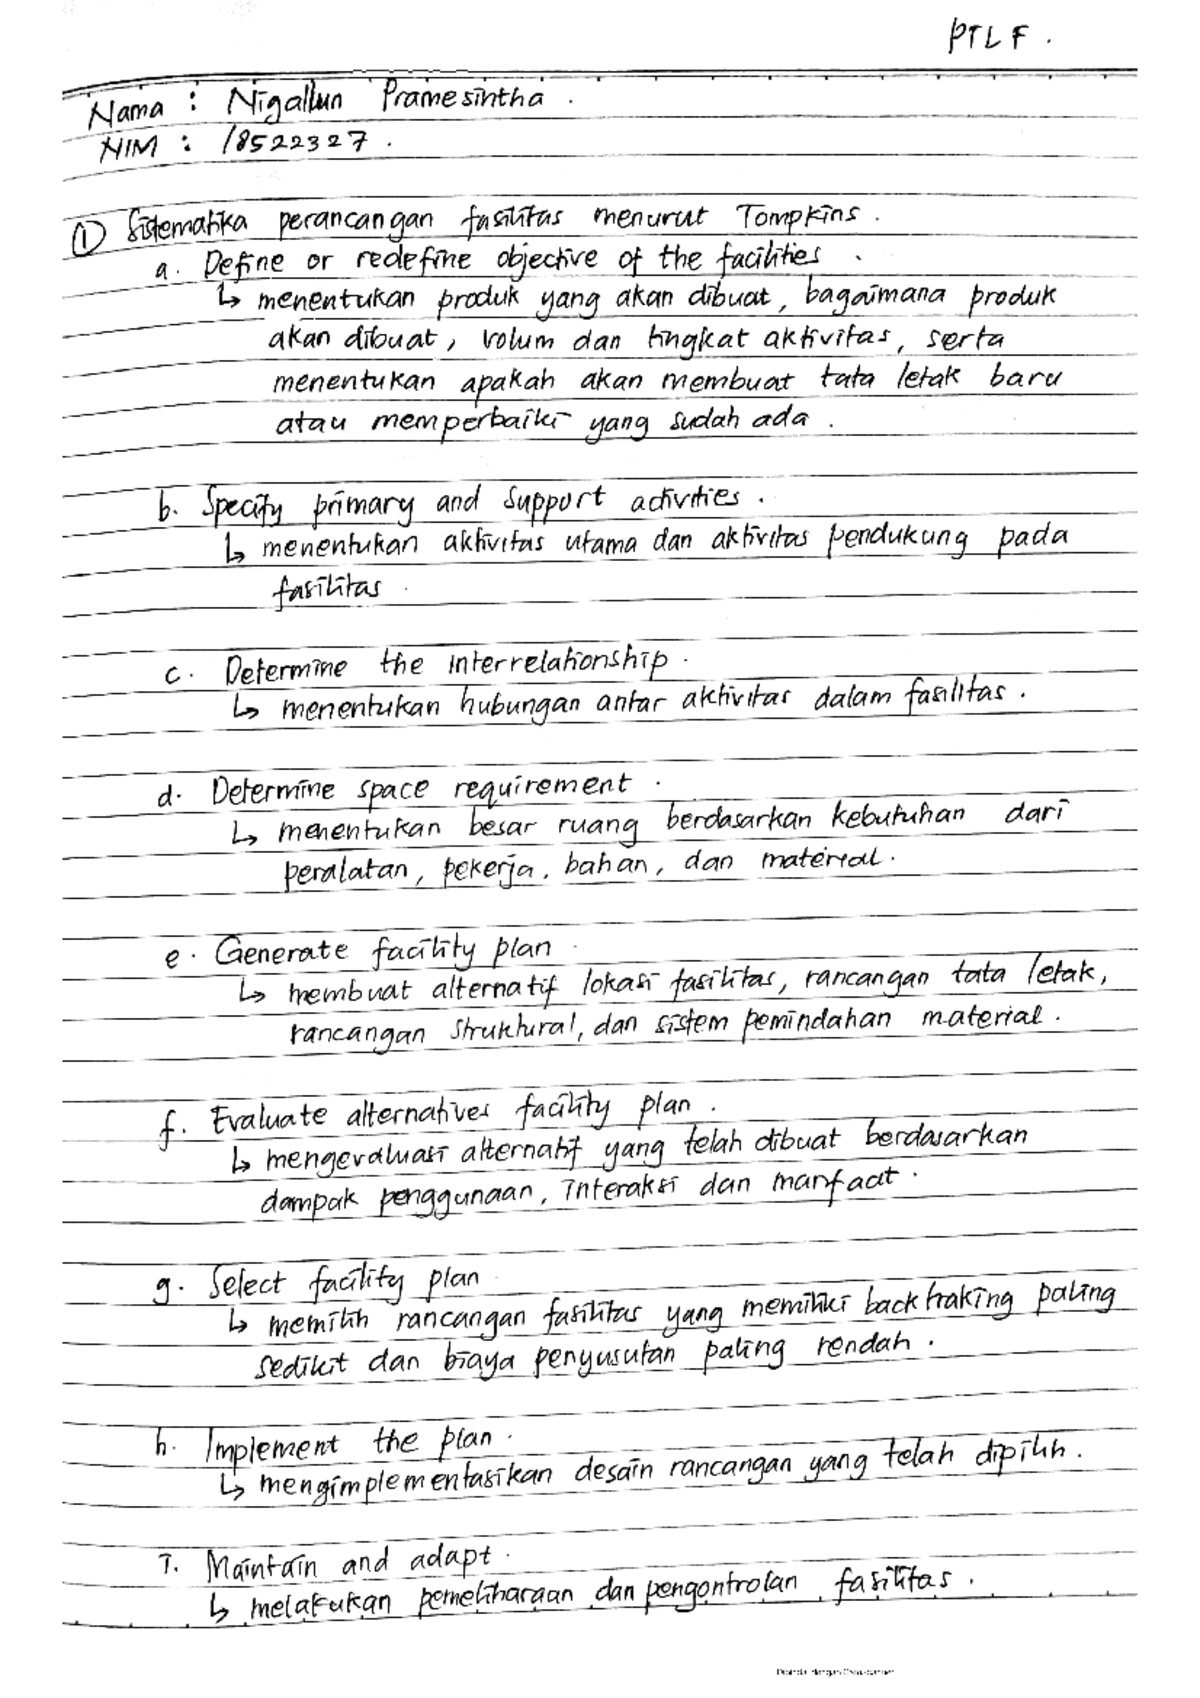 PTLF.
Nama : Nigallun Pramesintha.
NIM : 18522327.
① Sistematika perancangan fasilitas menurut Tompkins.
a. Define or redefine objective of the facilities.
↳ menentukan produk yang akan dibuat, bagaimana produk
akan dibuat, volum dan tingkat aktivitas, serta
menentukan apakah akan membuat tata letak baru
atau memperbaiki yang sudah ada.
b. Specify primary and support activities.
↳ menentukan aktivitas utama dan aktivitas pendukung pada
fasilitas.
c. Determine the interrelationship.
↳ menentukan hubungan antar aktivitas dalam fasilitas.
d. Determine space requirement.
↳ menentukan besar ruang berdasarkan kebutuhan dari
peralatan, pekerja, bahan, dan material.
e. Generate facility plan.
↳ membuat alternatif lokasi fasilitas, rancangan tata letak,
rancangan struktural, dan sistem pemindahan material.
f. Evaluate alternatives facility plan.
↳ mengevaluasi alternatif yang telah dibuat berdasarkan
dampak penggunaan, interaksi dan manfaat.
g. Select facility plan.
↳ memilih rancangan fasilitas yang memiliki backtraking paling
sedikit dan biaya penyusutan paling rendah.
h. Implement the plan.
↳ mengimplementasikan desain rancangan yang telah dipilih.
i. Maintain and adapt.
↳ melakukan pemeliharaan dan pengontrolan fasilitas.